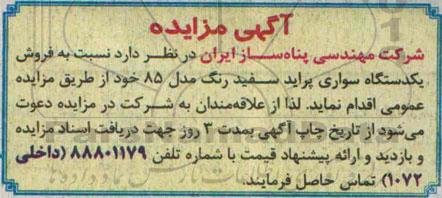 آگهی مزایده
شرکت مهندسی پناه‌ساز ایران در نظر دارد نسبت به فروش
یکدستگاه سواری پراید سفید رنگ مدل ۸۵ خود از طریق مزایده
عمومی اقدام نماید. لذا از علاقه‌مندان به شرکت در مزایده دعوت
می‌شود از تاریخ چاپ آگهی بمدت ۳ روز جهت دریافت اسناد مزایده
و بازدید و ارائه پیشنهاد قیمت با شماره تلفن ۸۸۸۰۱۱۷۹ (داخلی
۱۰۷۲) تماس حاصل فرمایند.